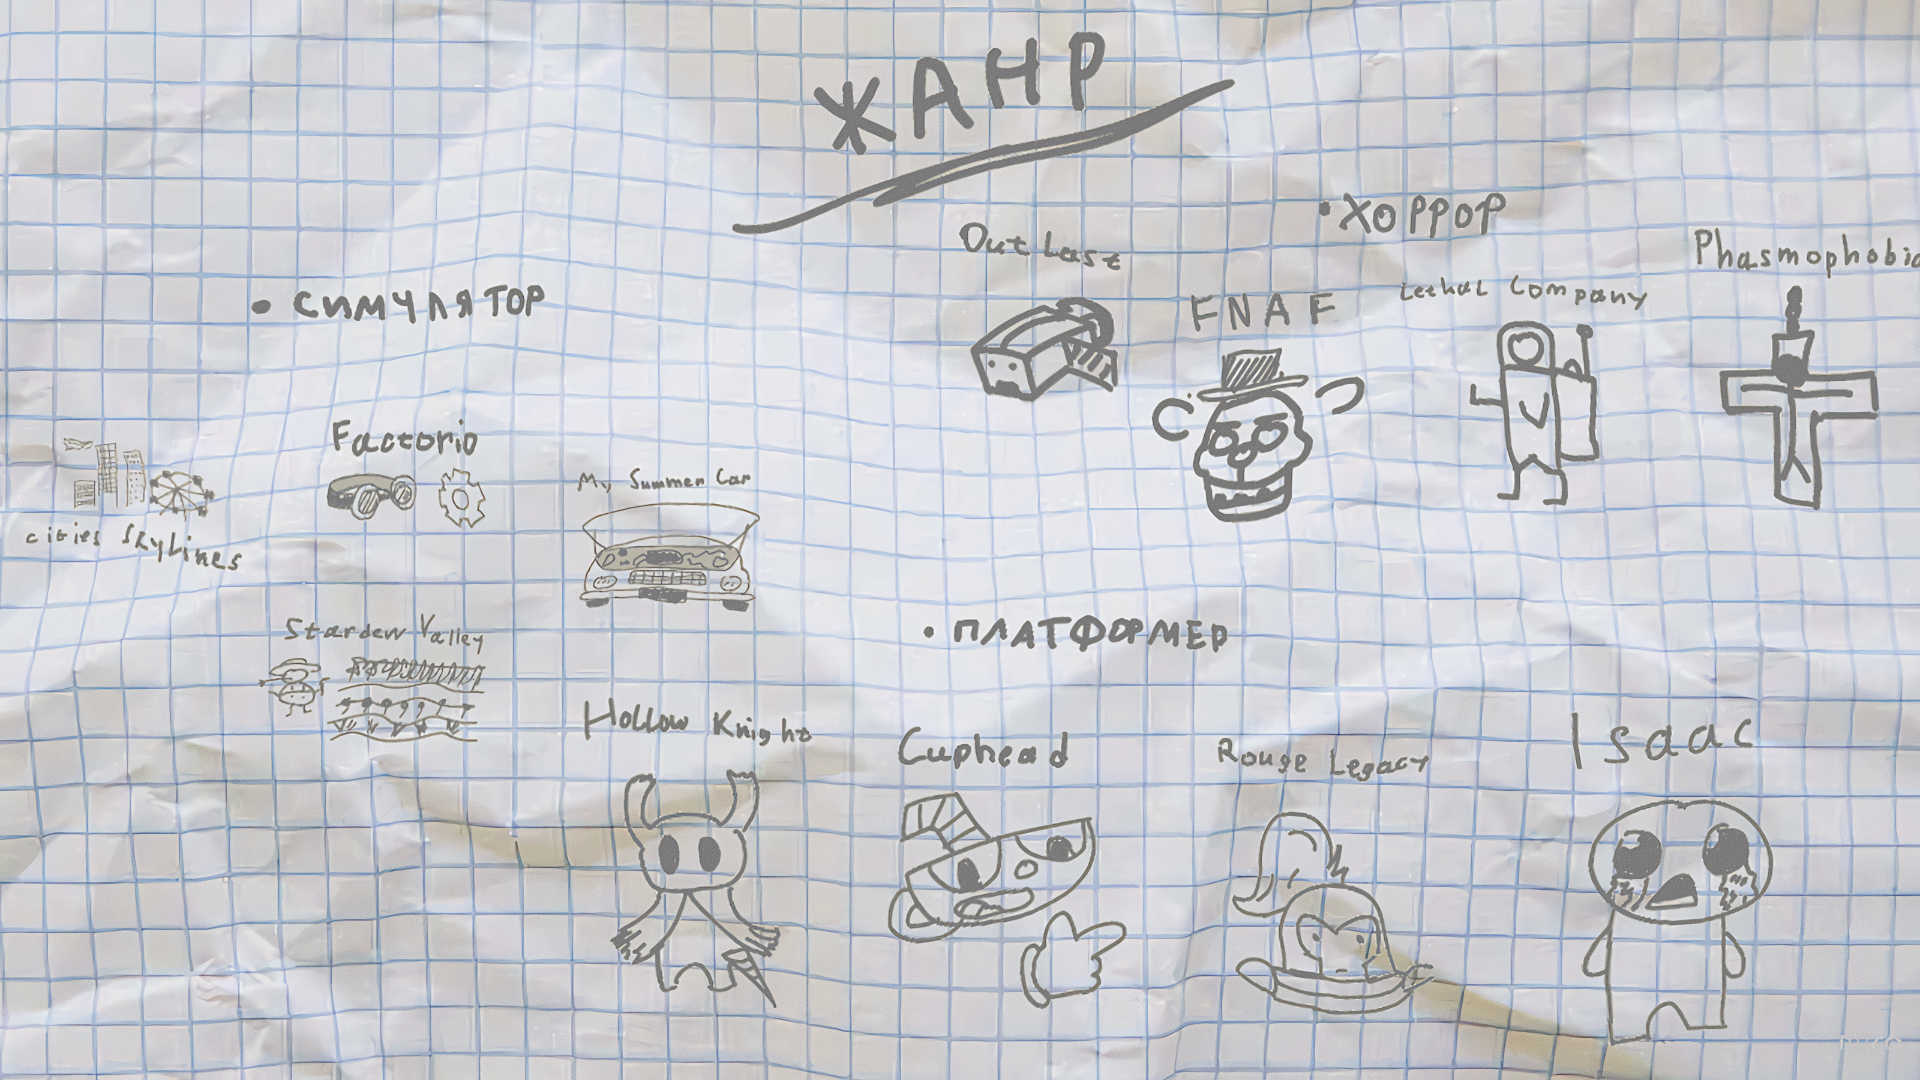 ЖАНР
• ХОРРОР
OutLast
FNAF
Lethal Company
Phasmophobia
• СИМУЛЯТОР
Factorio
My Summer Car
cities SkyLines
Stardew Valley
• ПЛАТФОРМЕР
Hollow Knight
Cuphead
Rouge Legacy
Isaac
miro